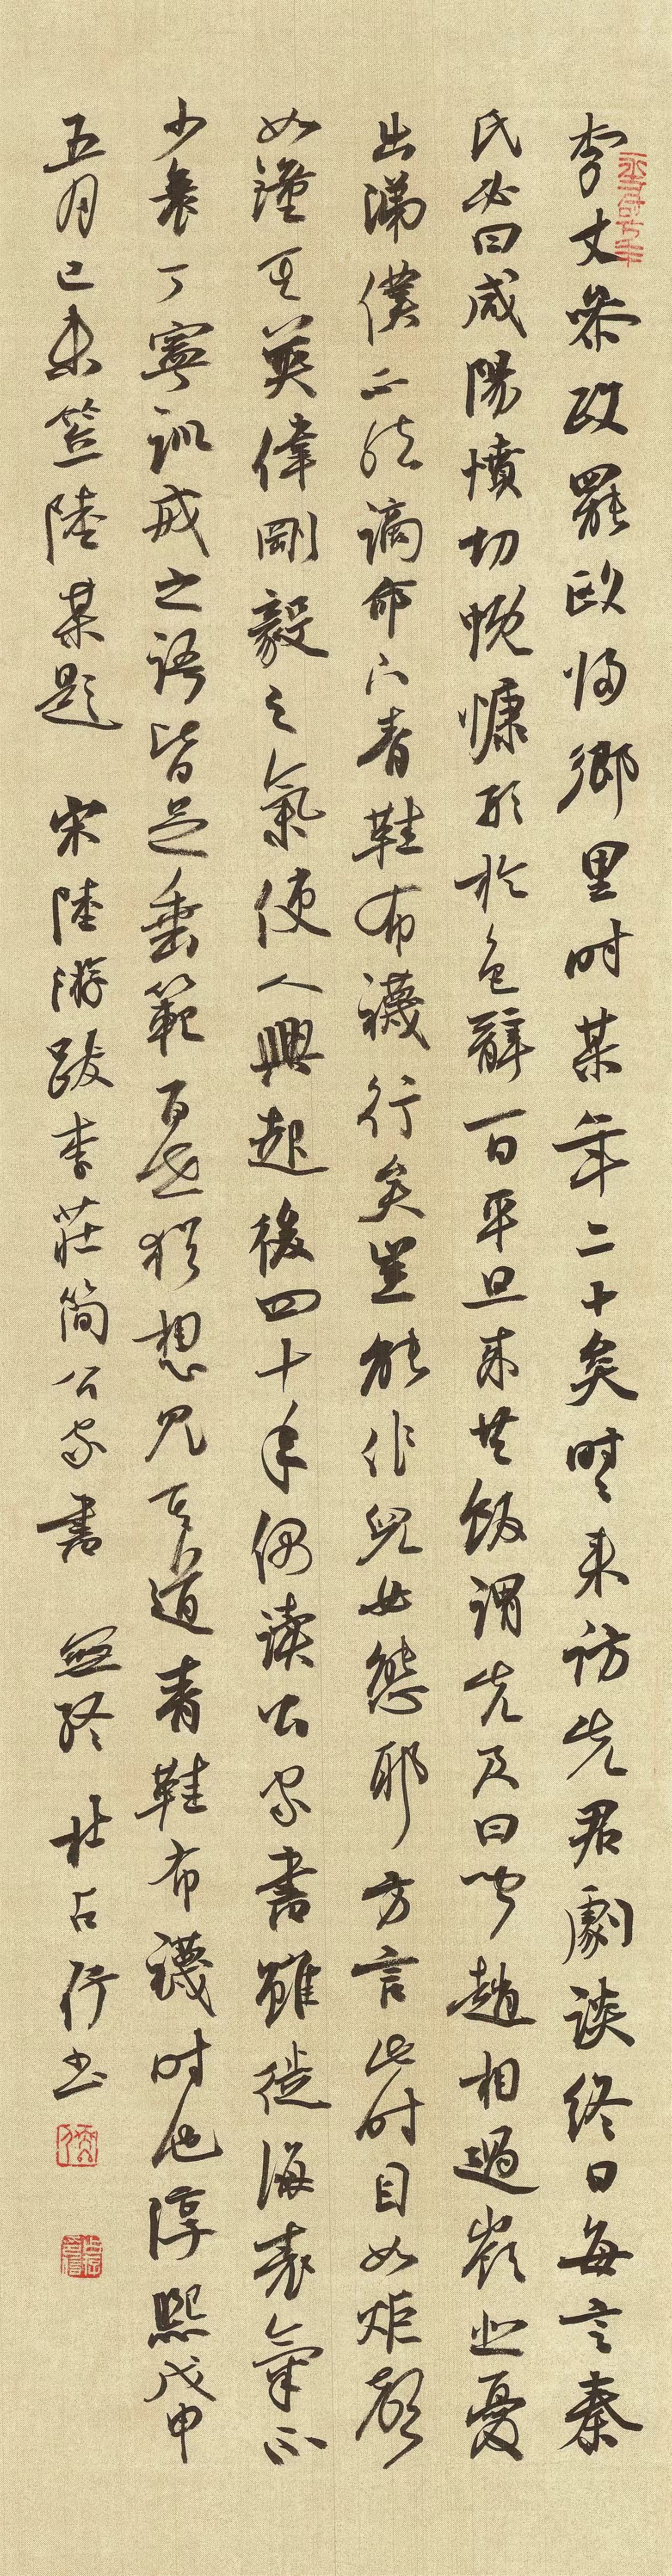 李丈參政罷政歸鄉里时某年二十矣时々来訪先君劇談終日每言秦
氏必曰咸陽憤切慨慷形於色辭一日平旦来共飯謂先君曰聞趙相過嶺悲憂
出涕僕不然謫命下青鞋布襪行矣豈能作兒女態耶方言此时目如炬聲
如鐘其英偉剛毅之氣使人興起後四十年偶读公家書雖徙海表氣不
少衰丁寧訓戒之語皆足垂範百世猶想見其道青鞋布襪时也淳熙戊申
五月己未笠陸某題 宋陸游跋李莊簡公家書 無終 杜占行书